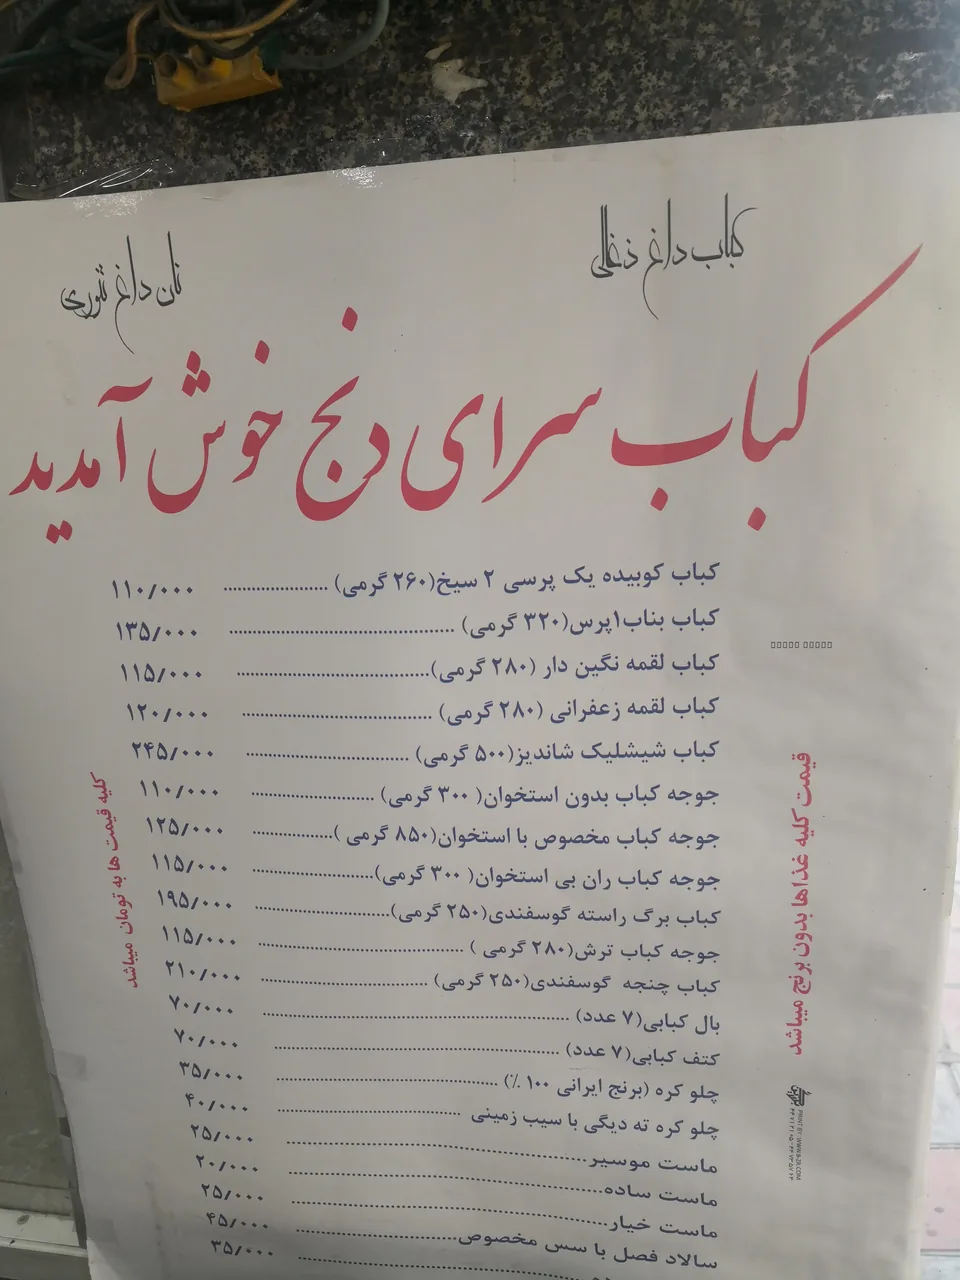 کباب داغ ذغالی
نان داغ تنوری
کباب سرای دنج خوش آمدید
کباب کوبیده یک پرسی ۲ سیخ(۲۶۰ گرمی) ........ ۱۱۰/۰۰۰
کباب بناب۱پرس(۳۲۰ گرمی) ........ ۱۳۵/۰۰۰
کباب لقمه نگین دار (۲۸۰ گرمی)........ ۱۱۵/۰۰۰
کباب لقمه زعفرانی (۲۸۰ گرمی) ........ ۱۲۰/۰۰۰
کباب شیشلیک شاندیز(۵۰۰ گرمی) ........ ۲۴۵/۰۰۰
جوجه کباب بدون استخوان( ۳۰۰ گرمی) ........ ۱۱۰/۰۰۰
جوجه کباب مخصوص با استخوان(۸۵۰ گرمی )........ ۱۲۵/۰۰۰
جوجه کباب ران بی استخوان( ۳۰۰ گرمی)........ ۱۱۵/۰۰۰
کباب برگ راسته گوسفندی(۲۵۰ گرمی)........ ۱۹۵/۰۰۰
جوجه کباب ترش(۲۸۰ گرمی ) ........ ۱۱۵/۰۰۰
کباب چنجه گوسفندی(۲۵۰ گرمی) ........ ۲۱۰/۰۰۰
بال کبابی(۷ عدد) ........ ۷۰/۰۰۰
کتف کبابی(۷ عدد) ........ ۷۰/۰۰۰
چلو کره (برنج ایرانی ۱۰۰ ٪) ........ ۳۵/۰۰۰
چلو کره ته دیگی با سیب زمینی ........ ۴۰/۰۰۰
ماست موسیر........ ۲۵/۰۰۰
ماست ساده........ ۲۰/۰۰۰
ماست خیار........ ۲۵/۰۰۰
سالاد فصل با سس مخصوص........ ۴۵/۰۰۰
۳۵/۰۰۰
قیمت کلیه غذاها بدون برنج میباشد
کلیه قیمت ها به تومان میباشد